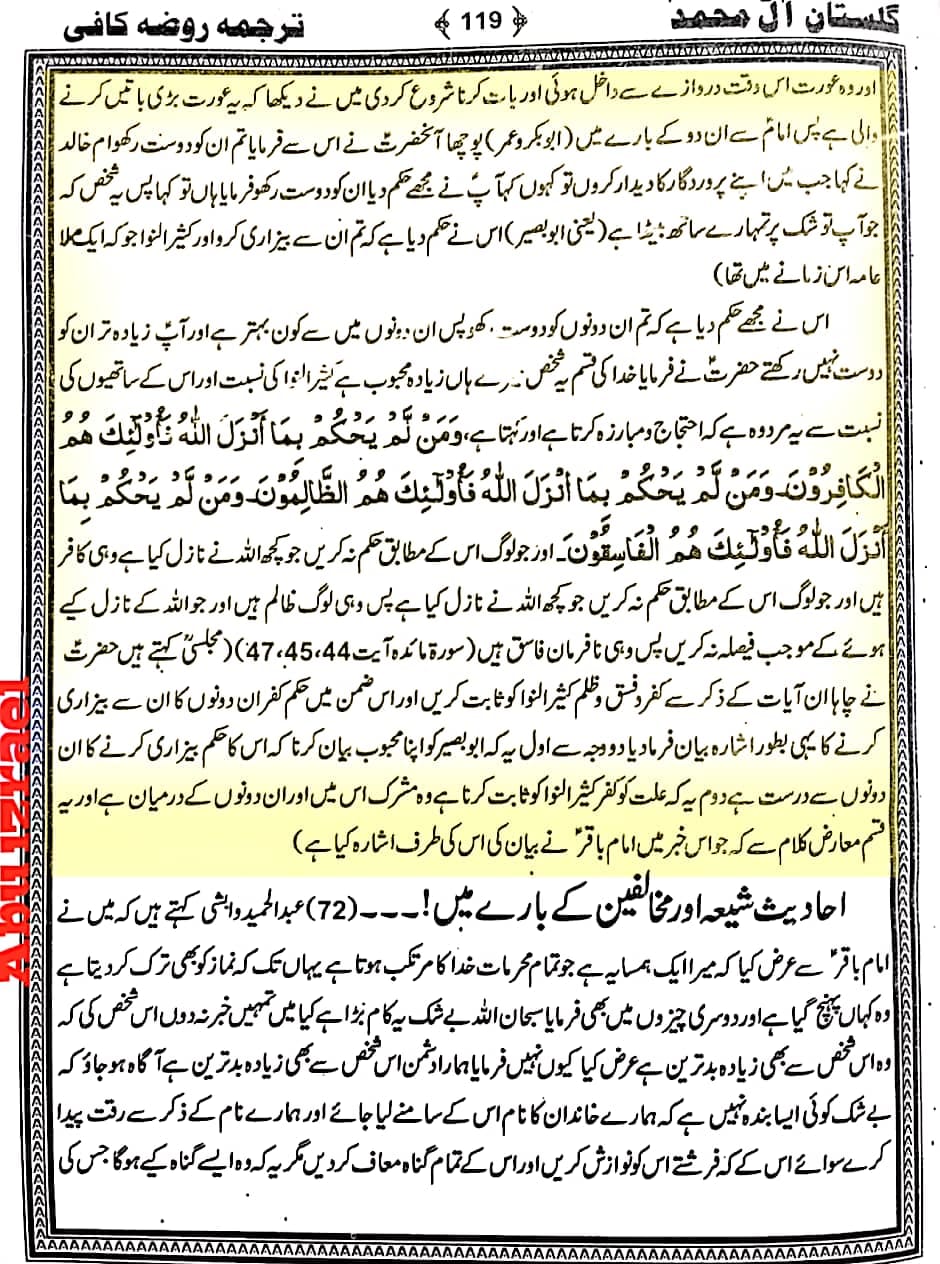 گلستان آل محمد ﴿ 119 ﴾ ترجمه روضه کافی
اور وہ عورت اس وقت دروازے سے داخل ہوئی اور بات کرنا شروع کردی میں نے دیکھا کہ یہ عورت بڑی باتیں کرنے
والی ہے پس امامؑ سے ان دو کے بارے میں (ابوبکر و عمر) پوچھا آنحضرتؑ نے اس سے فرمایا تم ان کو دوست رکھو ام خالد
نے کہا جب میں اپنے پروردگار کا دیدار کروں تو کہوں کہ آپؑ نے مجھے حکم دیا ان کو دوست رکھو فرمایا ہاں تو کہا پس یہ شخص کہ
جو آپ تو شک پر تمہارے ساتھ بیٹھا ہے (یعنی ابوبصیر) اس نے حکم دیا ہے کہ تم ان سے بیزاری کرو اور کثیر النوا جو کہ ایک ملا
عامہ اس زمانے میں تھا)
اس نے مجھے حکم دیا ہے کہ تم ان دونوں کو دوست رکھو پس ان دونوں میں سے کون بہتر ہے اور آپؑ زیادہ تر ان کو
دوست نہیں رکھتے حضرتؑ نے فرمایا خدا کی قسم یہ شخص ہاں زیادہ محبوب ہے کثیر النوا کی نسبت اور اس کے ساتھیوں کی
نسبت سے یہ مرد وہ ہے کہ احتجاج و مبارزہ کرتا ہے اور کہتا ہے، وَمَنْ لَّمْ يَحْكُمْ بِمَا أَنْزَلَ اللّٰهُ فَأُولٰٓئِكَ هُمُ
الْكَافِرُوْنَ۔ وَمَنْ لَّمْ يَحْكُمْ بِمَا أَنْزَلَ اللّٰهُ فَأُولٰٓئِكَ هُمُ الظَّالِمُوْنَ۔ وَمَنْ لَّمْ يَحْكُمْ بِمَا
أَنْزَلَ اللّٰهُ فَأُولٰٓئِكَ هُمُ الْفَاسِقُوْنَ۔ اور جو لوگ اس کے مطابق حکم نہ کریں جو کچھ اللہ نے نازل کیا ہے وہی کافر
ہیں اور جو لوگ اس کے مطابق حکم نہ کریں جو کچھ اللہ نے نازل کیا ہے پس وہی لوگ ظالم ہیں اور جو اللہ کے نازل کیے
ہوئے کے موجب فیصلہ نہ کریں پس وہی نافرمان فاسق ہیں (سورۃ مائدہ آیت 44،45،47) (مجلسیؒ کہتے ہیں حضرتؑ
نے چاہا ان آیات کے ذکر سے کفر و فسق و ظلم کثیر النوا کو ثابت کریں اور اس ضمن میں حکم کفر ان دونوں کا ان سے بیزاری
کرنے کا یہی بطور اشارہ بیان فرما دیا دو وجہ سے اول یہ کہ ابوبصیر کو اپنا محبوب بیان کرنا کہ اس کا حکم بیزاری کرنے کا ان
دونوں سے درست ہے دوم یہ کہ علت کو کفر کثیر النوا کو ثابت کرنا ہے وہ مشرک اس میں اور ان دونوں کے درمیان ہے اور یہ
قسم معارض کلام سے کہ جو اس خبر میں امام باقرؑ نے بیان کی اس کی طرف اشارہ کیا ہے)
احادیث شیعہ اور مخالفین کے بارے میں!۔۔۔۔ (72) عبدالحمید وابشی کہتے ہیں کہ میں نے
امام باقرؑ سے عرض کیا کہ میرا ایک ہمسایہ ہے جو تمام محرمات خدا کا مرتکب ہوتا ہے یہاں تک کہ نماز کو بھی ترک کر دیتا ہے
وہ کہاں پہنچ گیا ہے اور دوسری چیزوں میں بھی فرمایا سبحان اللہ بے شک یہ کام بڑا ہے کیا میں تمہیں خبر نہ دوں اس شخص کی کہ
وہ اس شخص سے بھی زیادہ بدترین ہے عرض کیا کیوں نہیں فرمایا ہمارا دشمن اس شخص سے بھی زیادہ بدترین ہے آگاہ ہو جاؤ کہ
بے شک کوئی ایسا بندہ نہیں ہے کہ ہمارے خاندان کا نام اس کے سامنے لیا جائے اور ہمارے نام کے ذکر سے رقت پیدا
کرے سوائے اس کے کہ فرشتے اس کو نوازش کریں اور اس کے تمام گناہ معاف کردیں مگر یہ کہ وہ ایسے گناہ کیے ہوگا جس کی
Abu1zrael